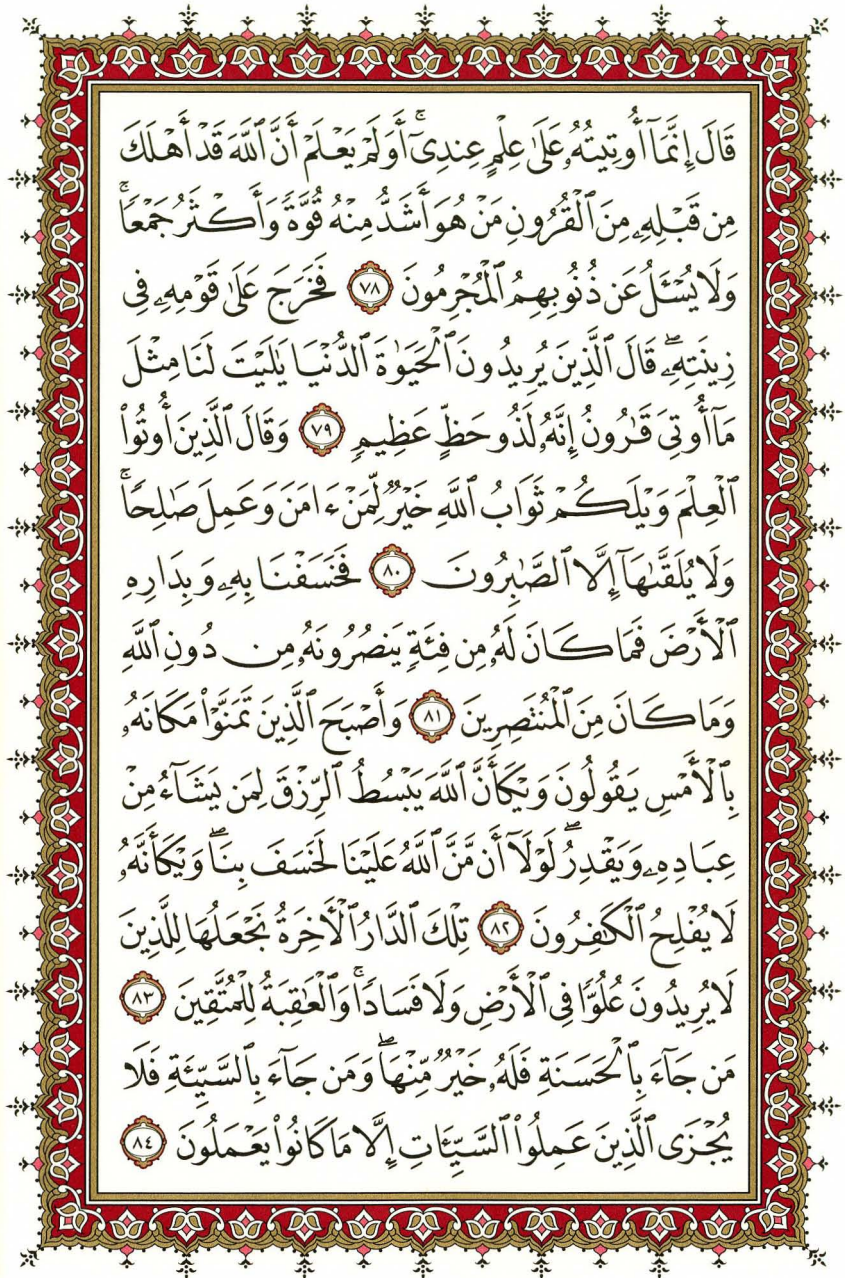 قَالَ إِنَّمَآ أُوتِيتُهُۥ عَلَىٰ عِلْمٍ عِندِىٓ ۚ أَوَلَمْ يَعْلَمْ أَنَّ ٱللَّهَ قَدْ أَهْلَكَ
مِن قَبْلِهِۦ مِنَ ٱلْقُرُونِ مَنْ هُوَ أَشَدُّ مِنْهُ قُوَّةً وَأَكْثَرُ جَمْعًا ۚ
وَلَا يُسْـَٔلُ عَن ذُنُوبِهِمُ ٱلْمُجْرِمُونَ ٧٨ فَخَرَجَ عَلَىٰ قَوْمِهِۦ فِى
زِينَتِهِۦ ۖ قَالَ ٱلَّذِينَ يُرِيدُونَ ٱلْحَيَوٰةَ ٱلدُّنْيَا يَٰلَيْتَ لَنَا مِثْلَ
مَآ أُوتِىَ قَٰرُونُ إِنَّهُۥ لَذُو حَظٍّ عَظِيمٍ ٧٩ وَقَالَ ٱلَّذِينَ أُوتُوا۟
ٱلْعِلْمَ وَيْلَكُمْ ثَوَابُ ٱللَّهِ خَيْرٌ لِّمَنْ ءَامَنَ وَعَمِلَ صَٰلِحًا ۚ
وَلَا يُلَقَّىٰهَآ إِلَّا ٱلصَّٰبِرُونَ ٨٠ فَخَسَفْنَا بِهِۦ وَبِدَارِهِ
ٱلْأَرْضَ فَمَا كَانَ لَهُۥ مِن فِئَةٍ يَنصُرُونَهُۥ مِن دُونِ ٱللَّهِ
وَمَا كَانَ مِنَ ٱلْمُنتَصِرِينَ ٨١ وَأَصْبَحَ ٱلَّذِينَ تَمَنَّوْا۟ مَكَانَهُۥ
بِٱلْأَمْسِ يَقُولُونَ وَيْكَأَنَّ ٱللَّهَ يَبْسُطُ ٱلرِّزْقَ لِمَن يَشَآءُ مِنْ
عِبَادِهِۦ وَيَقْدِرُ ۖ لَوْلَآ أَن مَّنَّ ٱللَّهُ عَلَيْنَا لَخَسَفَ بِنَا ۖ وَيْكَأَنَّهُۥ
لَا يُفْلِحُ ٱلْكَٰفِرُونَ ٨٢ تِلْكَ ٱلدَّارُ ٱلْأَخِرَةُ نَجْعَلُهَا لِلَّذِينَ
لَا يُرِيدُونَ عُلُوًّا فِى ٱلْأَرْضِ وَلَا فَسَادًا ۚ وَٱلْعَٰقِبَةُ لِلْمُتَّقِينَ ٨٣
مَن جَآءَ بِٱلْحَسَنَةِ فَلَهُۥ خَيْرٌ مِّنْهَا ۖ وَمَن جَآءَ بِٱلسَّيِّئَةِ فَلَا
يُجْزَى ٱلَّذِينَ عَمِلُوا۟ ٱلسَّيِّـَٔاتِ إِلَّا مَا كَانُوا۟ يَعْمَلُونَ ٨٤